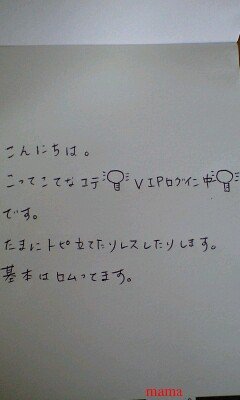 こんにちは。
こってこてなコテ💡VIPログイン中💡
です。
たまにトピ立てたりレスしたりします。
基本はロムってます。
mama